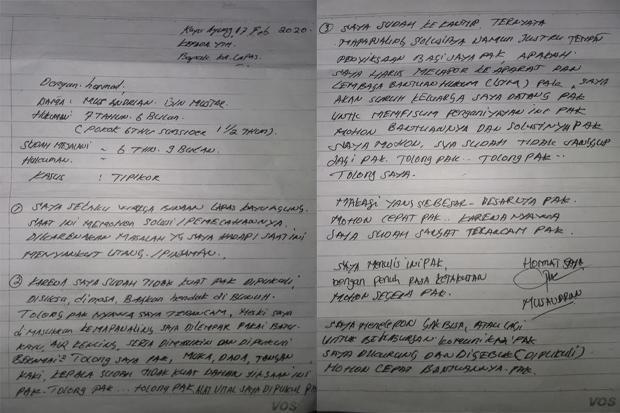 Kayu Agung, 17 Feb 2020.
Kepada YTH.
Bapak Ka. Lapas.
Dengan hormat,
Nama : Mus Andrian
Hukuman 7 Tahun 6 Bulan
(Pokok 6 Thn Subsider 1 1/2 Tahun)
Sudah menjalani ~ 6 Thn. 9 Bulan.
Hukuman ~
Kasus : Tipikor
① Saya selaku warga binaan Lapas Kayu Agung.
Saat ini memohon solusi/pemecahannya.
Dikarenakan masalah yg saya hadapi saat ini
menyangkut utang/pinjaman.
② Karena saya sudah tidak kuat Pak dipukuli,
Disiksa, dimasa, bahkan hendak di bunuh.
Tolong Pak nyawa saya terancam, meski saya
di masukan saya dilempar pakai batu.
Kayu, air kencing, serta dan dipukuli
Tolong saya Pak, muka, dada, tangan.
Kaki, kepala sudah tidak kuat dahan
Pak. Tolong Pak... Tolong Pak alat vital saya dipukul
③ Saya sudah ke kantip ternyata
solusinya namun justru tempat
penyiksaan bagi saya Pak apakah
saya harus melapor ke aparat dan
Lembaga Bantuan Hukum (LBH) Pak. Saya
akan suruh keluarga saya datang Pak
untuk penganiyayan ini Pak
mohon bantuannya dan solusinya Pak
saya mohon, sya sudah tidak sanggup
lagi Pak. Tolong Pak.. Tolong Pak..
Tolong saya.
Makasi yang sebesar-besarnya Pak.
Mohon cepat Pak.. karena nyawa
saya sudah sangat terancam Pak.
Saya menulis ini Pak,
dengan penuh rasa ketakutan
mohon segera Pak.
Hormat saya
Saya menelepon gak bisa, apalagi
untuk komunikasi Pak
saya dikurung dan digebuk (dipukuli)
mohon cepat bantuannya Pak.
VOS
VOS